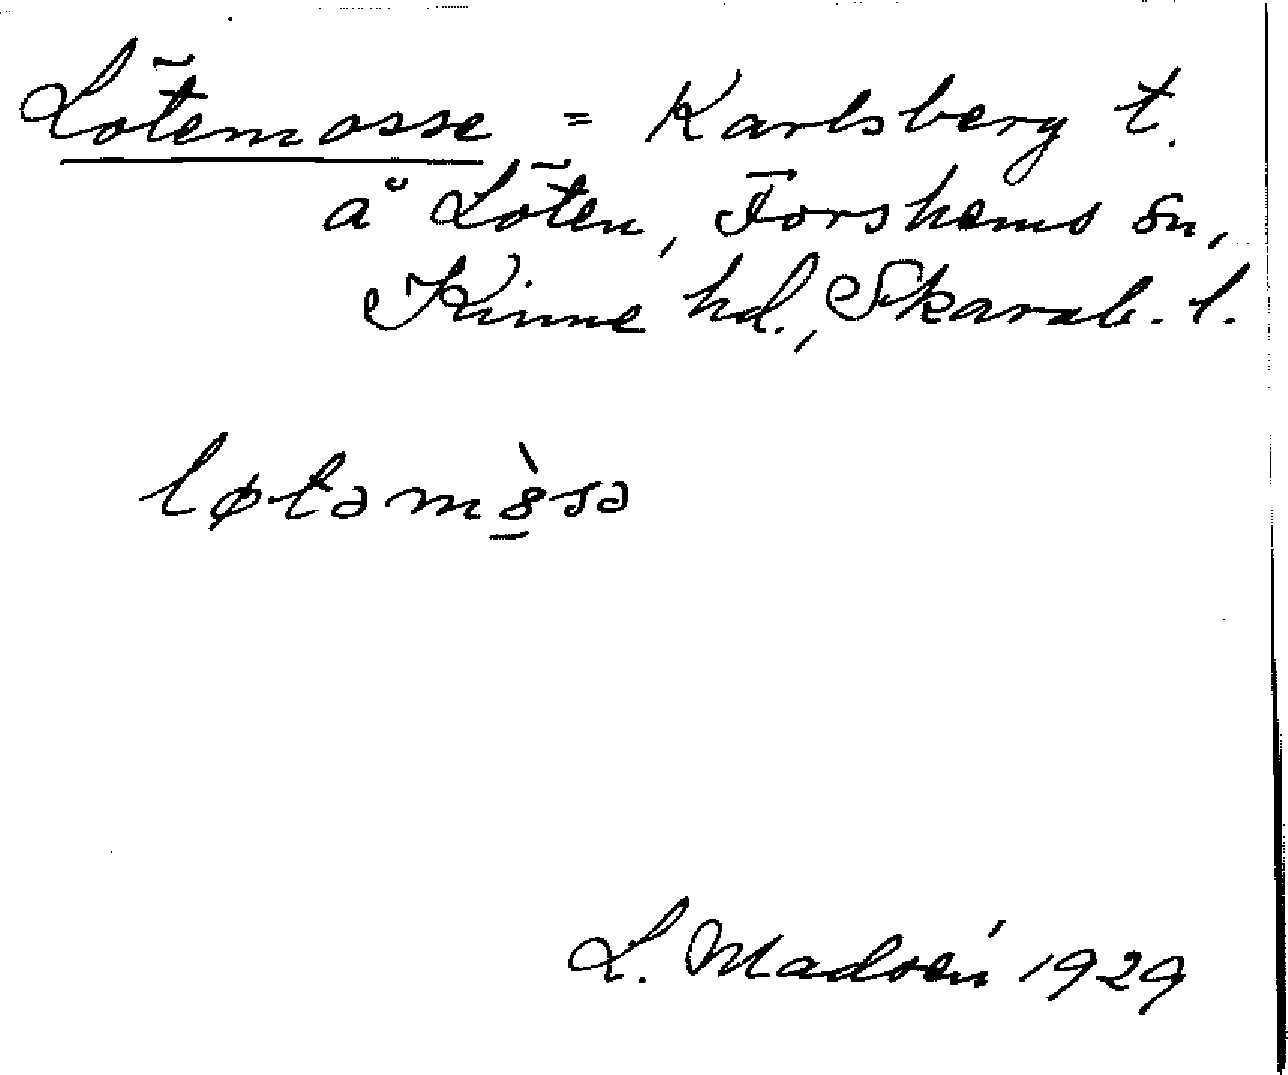 Lötemosse = Karlsberg t.
å Löten, Forshems sn,
Kinne hd., Skarab. l.
løtəmò̱sə
L. Madsén 1929